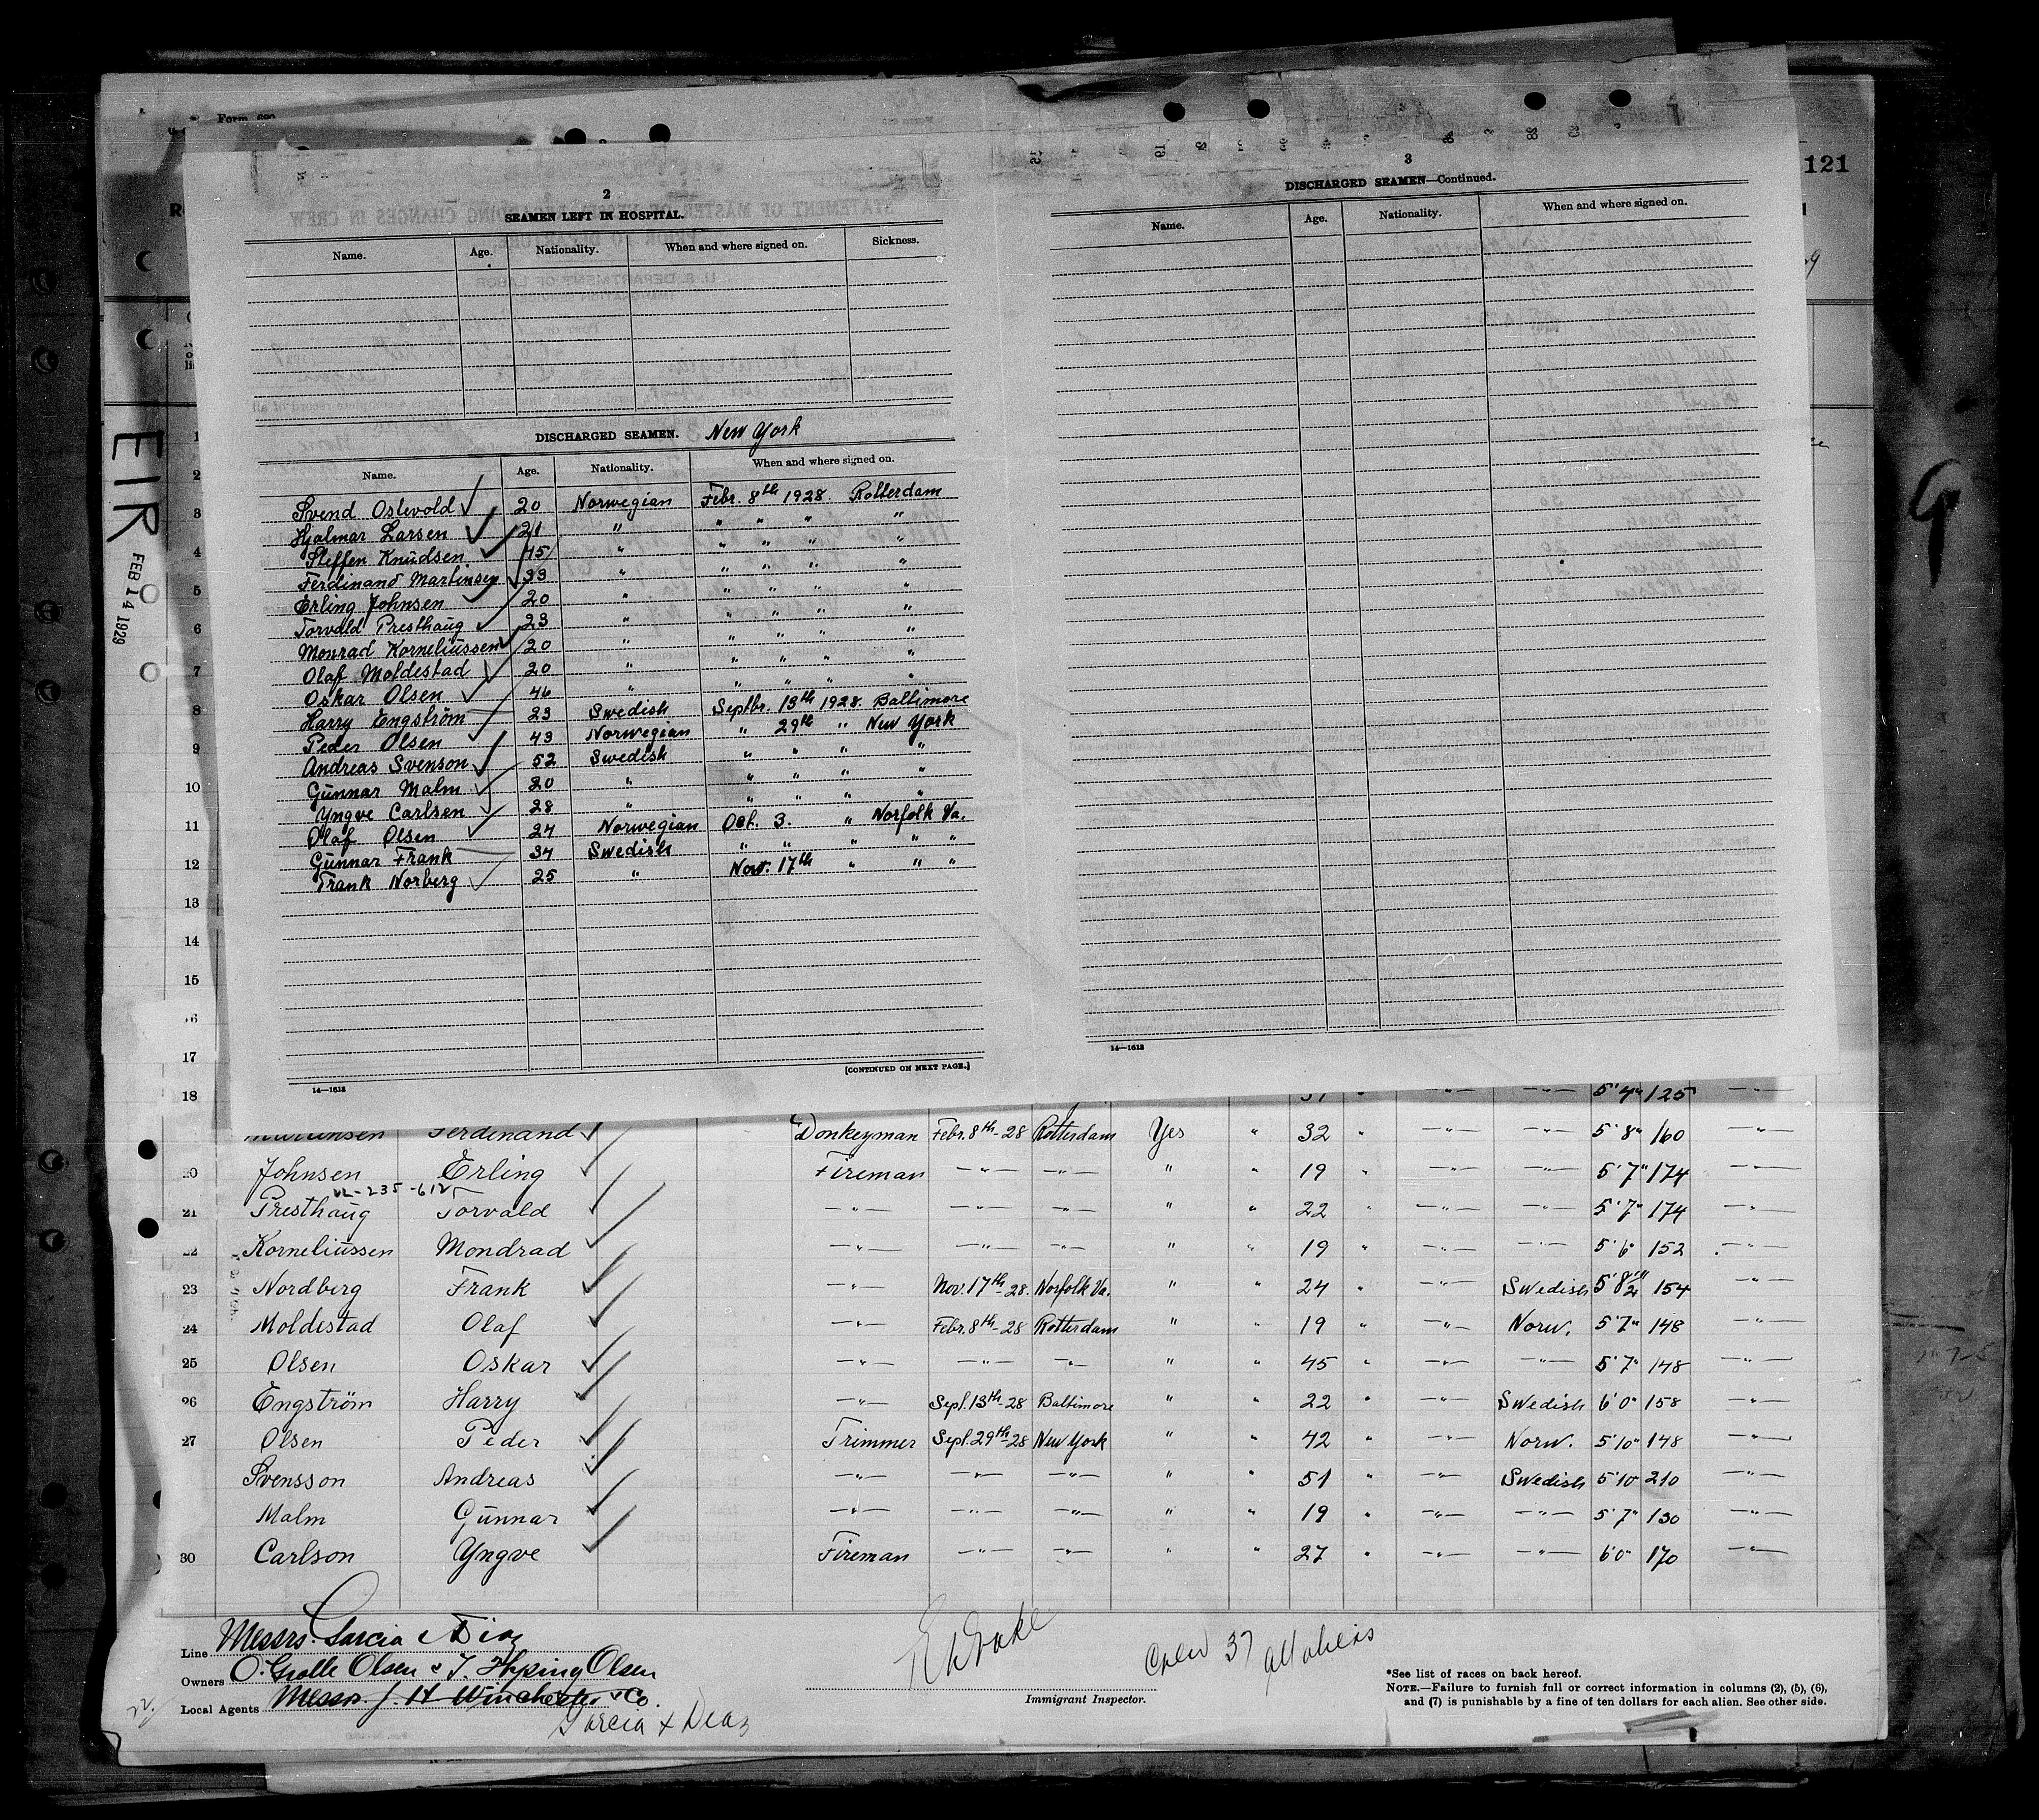 Form 680
121
EIR FEB 14 1929
2
SEAMEN LEFT IN HOSPITAL.
Name. Age. Nationality. When and where signed on. Sickness.
DISCHARGED SEAMEN. New York
Name. Age. Nationality. When and where signed on.
Svend Ostevold 20 Norwegian Febr. 8th 1928. Rotterdam
Hjalmar Larsen 21 " " " " "
Steffen Knudsen 45 " " " " "
Ferdinand Martinsen 33 " " " " "
Erling Johnsen 20 " " " " "
Torvald Presthaug 23 " " " " "
Monrad Korneliussen 20 " " " " "
Olaf Moldestad 20 " " " " "
Oskar Olsen 46 " " " " "
Harry Engström 23 Swedish Septbr. 13th 1928. Baltimore
Peder Olsen 43 Norwegian " 29th " New York
Andreas Svenson 52 Swedish " " " "
Gunnar Malm 20 " " " " "
Yngve Carlsen 28 " " " " "
Olaf Olsen 24 Norwegian Oct. 3. " Norfolk Va.
Gunnar Frank 34 Swedish " " " " "
Frank Norberg 25 " Nov. 17th " " "
14—1613
[CONTINUED ON NEXT PAGE.]
3
DISCHARGED SEAMEN—Continued.
Name. Age. Nationality. When and where signed on.
14—1613
3
4
5
6
7
8
9
10
11
12
13
14
15
16
17
18 " —"— —"— 5'4" 125 —"—
Martinsen Ferdinand Donkeyman Febr. 8th-28 Rotterdam Yes " 32 " —"— —"— 5'8" 160 —"—
20 Johnsen Erling Fireman —"— —"— " " 19 " —"— —"— 5'7" 174 —"—
12-235-612
21 Presthaug Torvald —"— —"— —"— " " 22 " —"— —"— 5'7" 174 —"—
22 Korneliussen Mondrad —"— —"— —"— " " 19 " —"— —"— 5'6" 152 —"—
23 Nordberg Frank —"— Nov. 17th-28. Norfolk Va. " " 24 " —"— Swedish 5'8½" 154 —"—
24 Moldestad Olaf —"— Febr. 8th-28 Rotterdam " " 19 " —"— Norw. 5'7" 148 —"—
25 Olsen Oskar —"— —"— —"— " " 45 " —"— —"— 5'7" 148 —"—
26 Engström Harry —"— Sept. 13th-28 Baltimore " " 22 " —"— Swedish 6'0" 158 —"—
27 Olsen Peder Trimmer Sept. 29th-28 New York " " 42 " —"— Norw. 5'10" 148 —"—
Svensson Andreas —"— —"— —"— " " 51 " —"— Swedish 5'10 210 —"—
Malm Gunnar —"— —"— —"— " " 19 " —"— —"— 5'7" 130 —"—
30 Carlson Yngve Fireman —"— —"— " " 27 " —"— —"— 6'0" 170 —"—
Line Messrs. Garcia & Diaz
Owners O. Grolle Olsen & T. Olsen
Local Agents Messrs. J. H. Winchester & Co.
Garcia & Diaz
Immigrant Inspector.
Crew 37 all aliens
*See list of races on back hereof.
NOTE.—Failure to furnish full or correct information in columns (2), (5), (6),
and (7) is punishable by a fine of ten dollars for each alien. See other side.